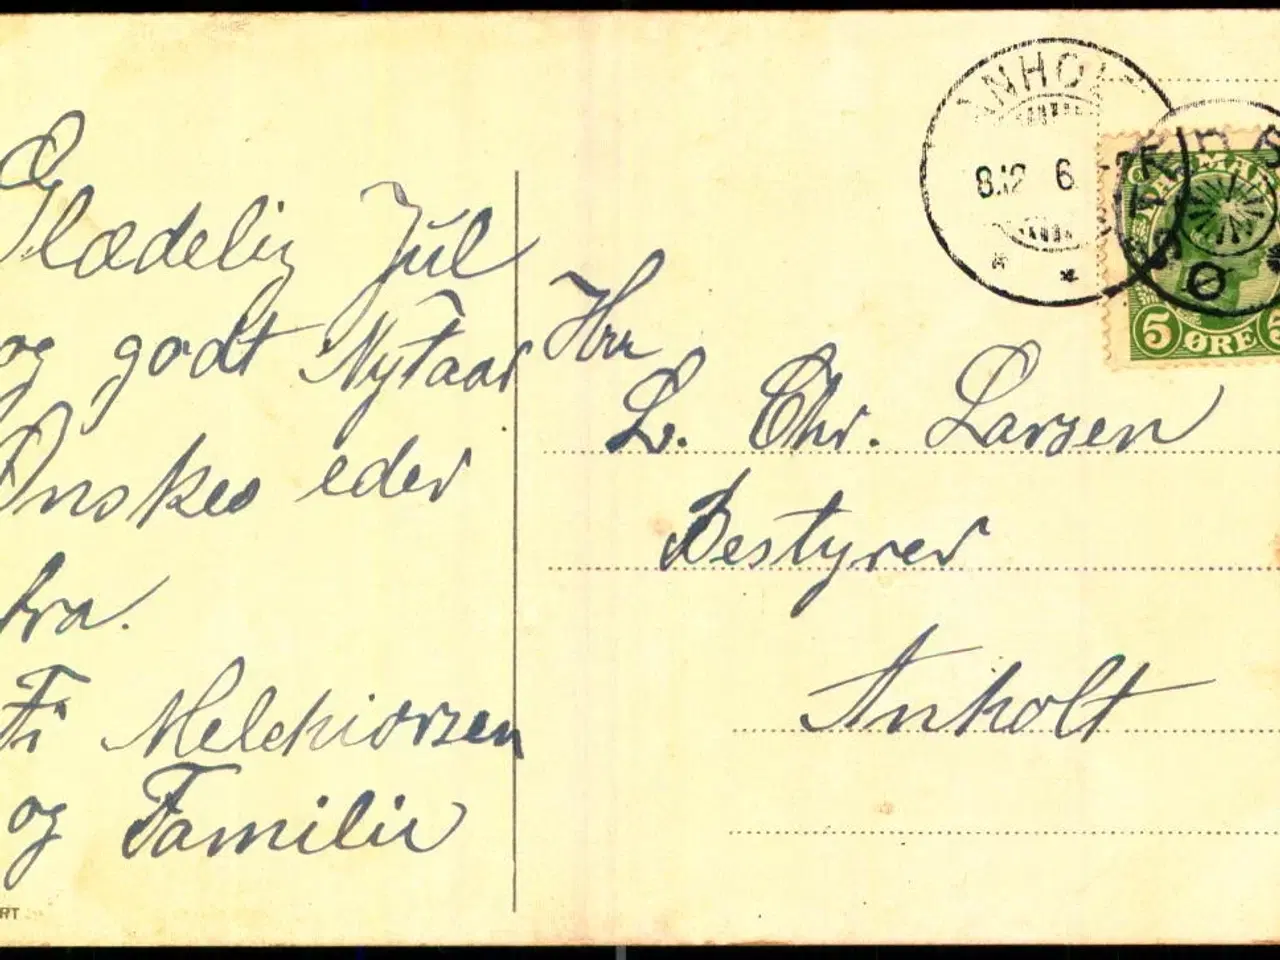 Glædelig Jul
og godt Nytaar
Ønskes eder
fra.
Fi Melchiorsen
og Familie
RT
ANHOLT
8.12 6.
DANMARK
5 ØRE 5
Hrr
L. Chr. Larsen
Bestyrer
Anholt